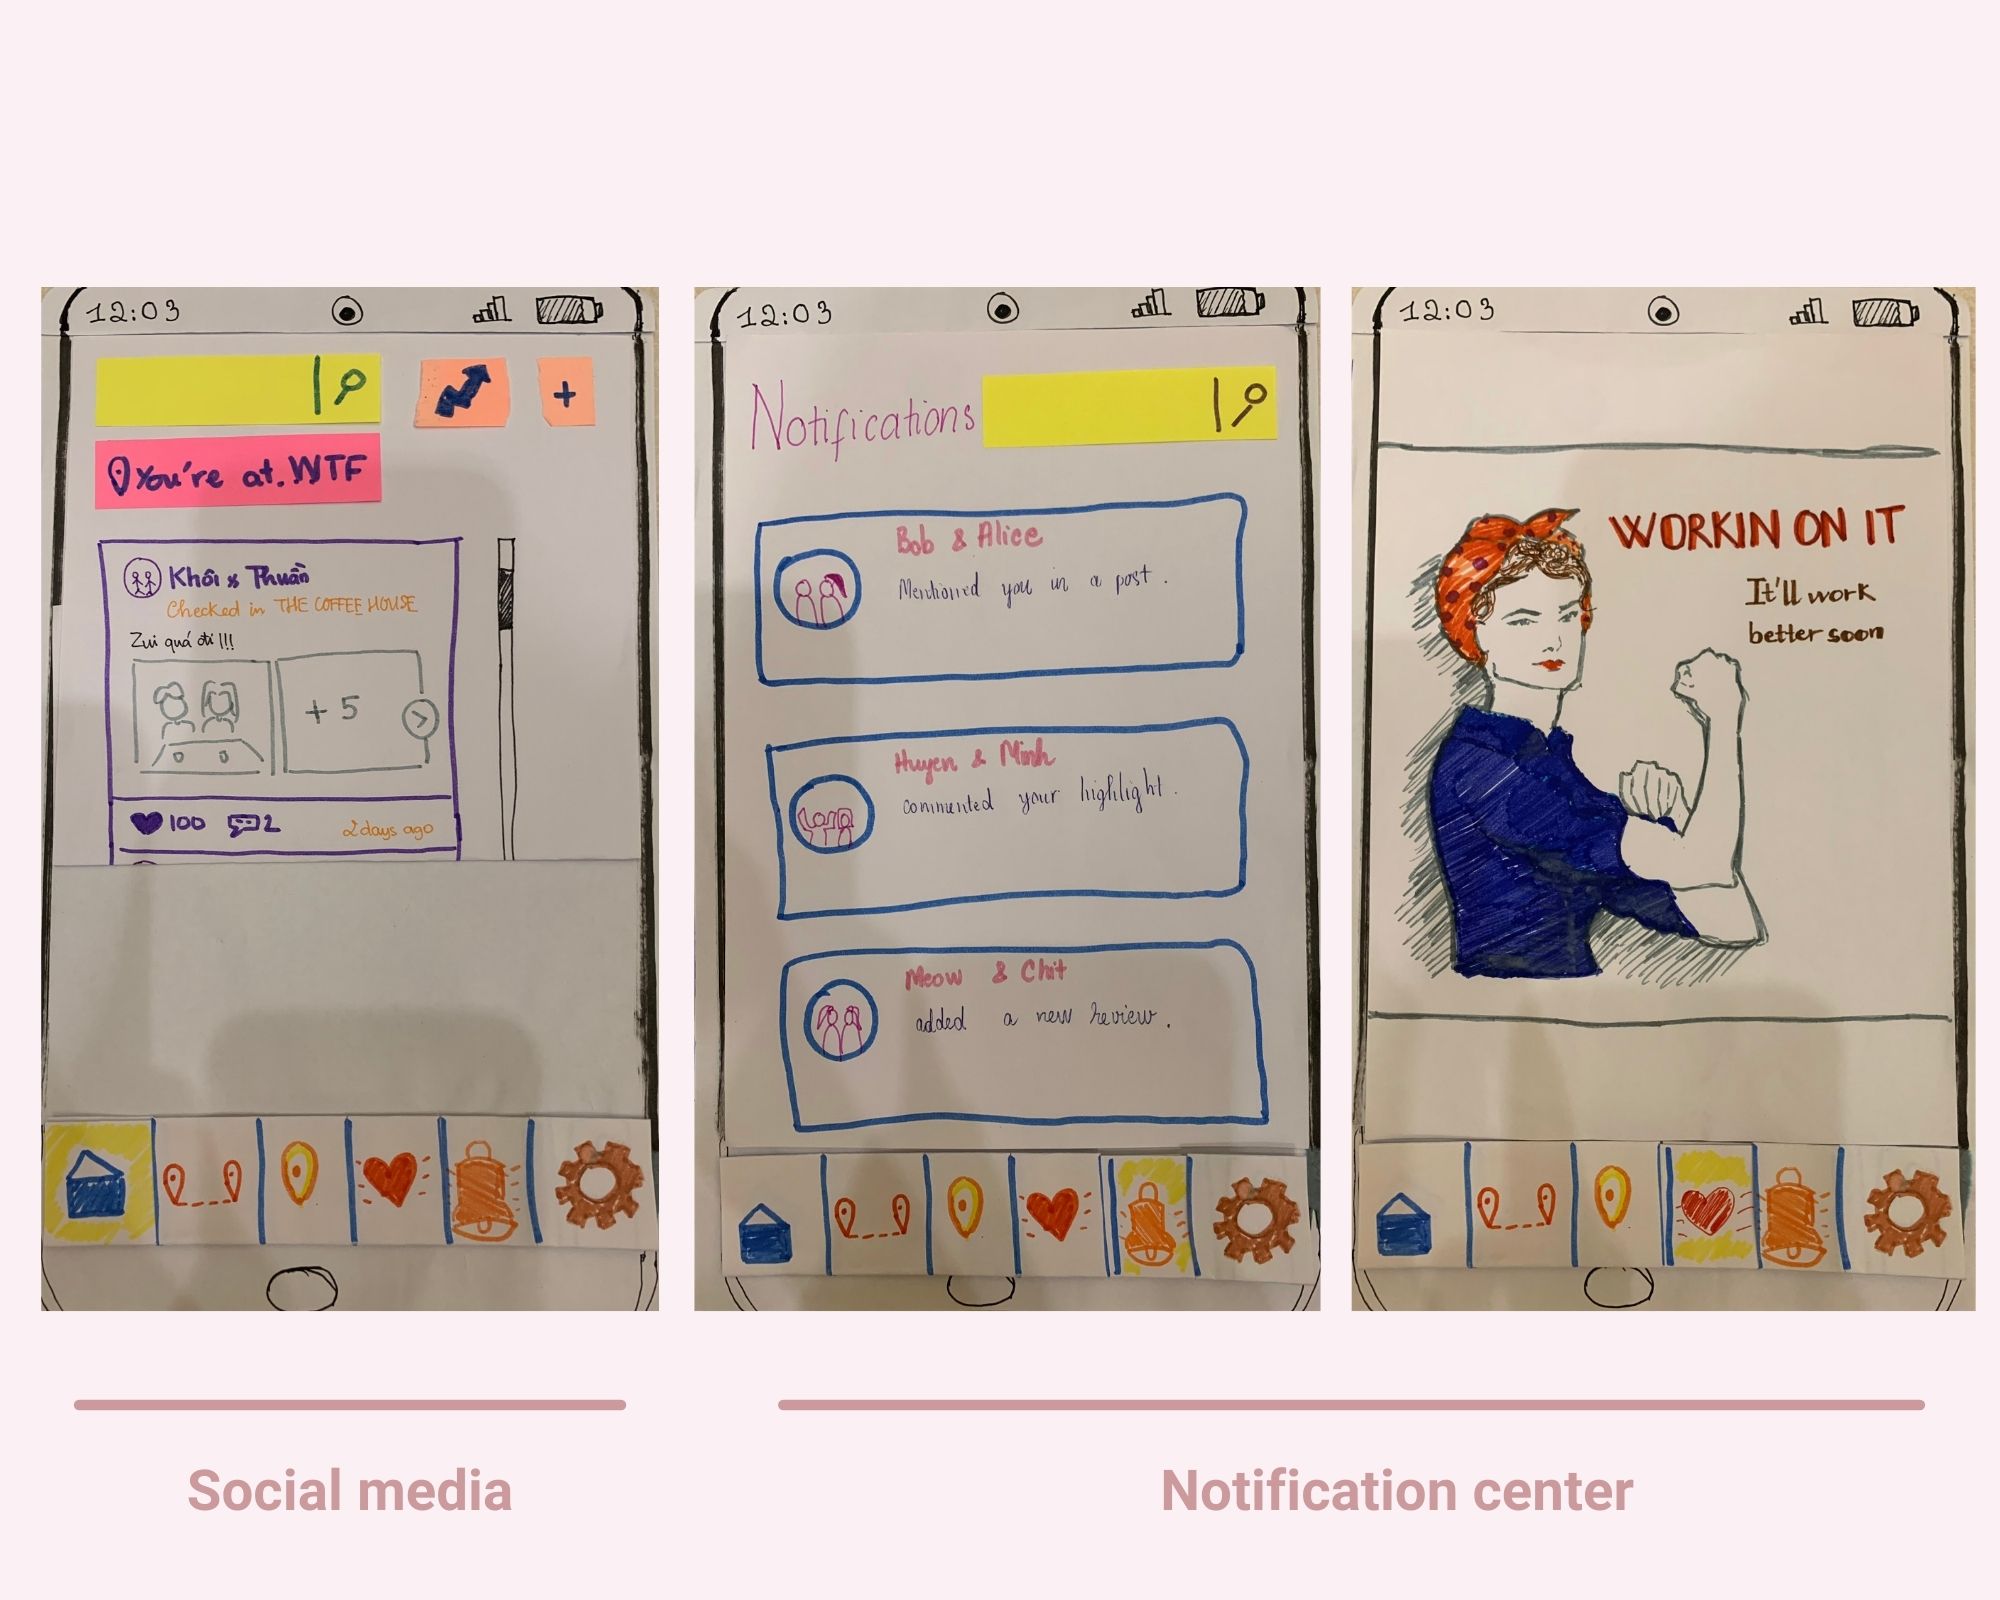 12:03
You're at. WTF
+
Khôi & Thuần
Checked in THE COFFEE HOUSE
Zui quá đi !!!
+ 5
100
2
2 days ago
12:03
Notifications
Bob & Alice
Mentioned you in a post.
Huyen & Minh
commented your highlight.
Meow & Chit
added a new review.
12:03
WORKIN ON IT
It'll work
better soon
Social media
Notification center